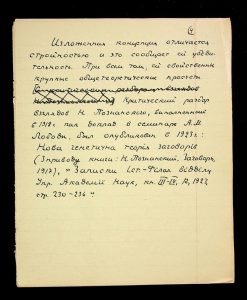 Изложенная концепция отличается
стройностью и это сообщает ей убеди-
тельность. При всем том ей свойственны
крупные общетеоретические просчеты
Критический разбор
взглядов Н. Познанского, выполненный
в 1918 г. как доклад в семинаре А.М.
Лободы, был опубликован в 1923 г.:
Нова генетична теорія заговорів
(З приводу книги: Н. Познанский. Заговоры,
1917), " Записки Іст.-Філол. відділу
Укр. Академії Наук, кн. III-IV, К, 1923,
стр. 230-236 "